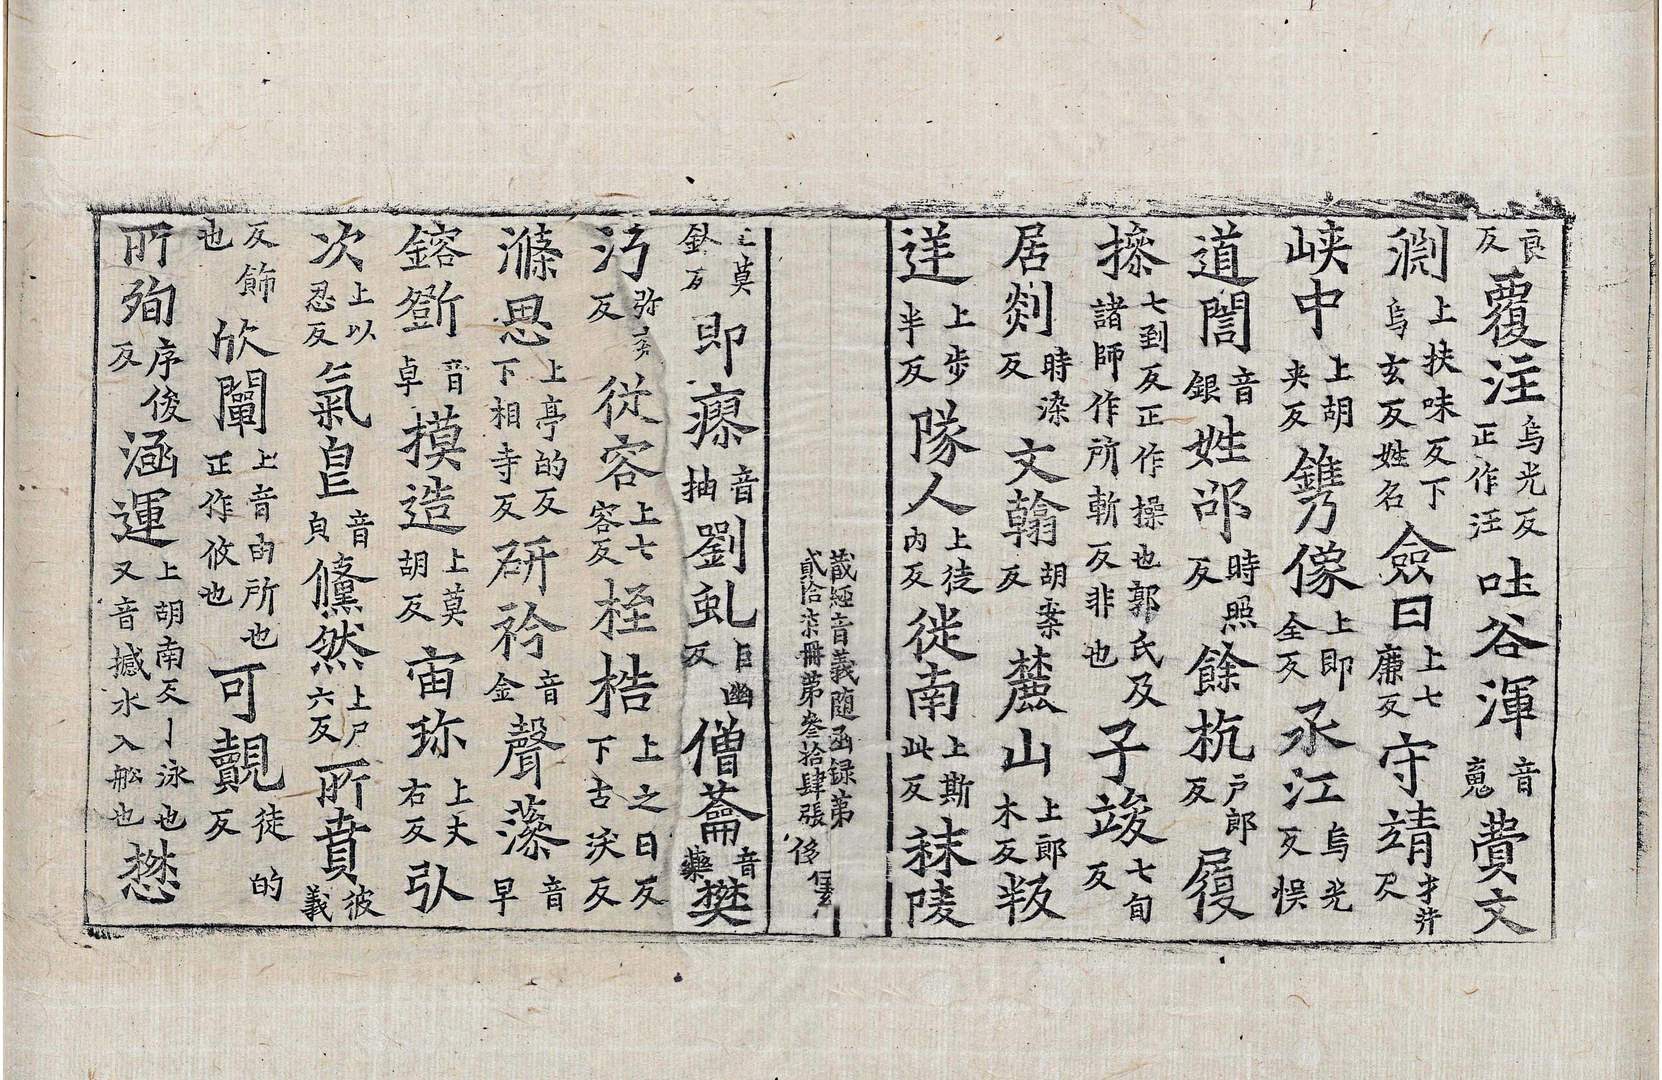 良反覆注烏光反正作汪吐谷渾音䰟費文
淵上扶味反下烏玄反姓名僉曰上七廉反守靖才井反
峽中上胡夹反鐫像上即全反丞江烏光反悮
道誾音銀姓邵時照反餘杭户郎反履
摻七到反正作操也郭氏及諸師作所斬反非也子竣七旬反
居剡時染反文翰胡案反麓山上郎木反叛
逆上步半反隊人上徒内反徙南上斯此反秣陵
藏經音義随函録第貳拾柒冊第叁拾肆張
上莫反即瘳音抽劉虬巨幽反僧蘥音藥樊
沔弥反從容上七容反桎梏上之日反下古沃反
滌思上亭的反下相寺反研衿音金聲藻音早
鎔鐁音卓摸造上莫胡反宙珎上丈右反弘
次上以忍反氣皀音皃儻然上尸六反所賁彼義
反飾也欣闡上音由所也正作攸也可覿徒的反
所殉序俊反涵運上胡南反丨泳也又音撼水入舩也懋